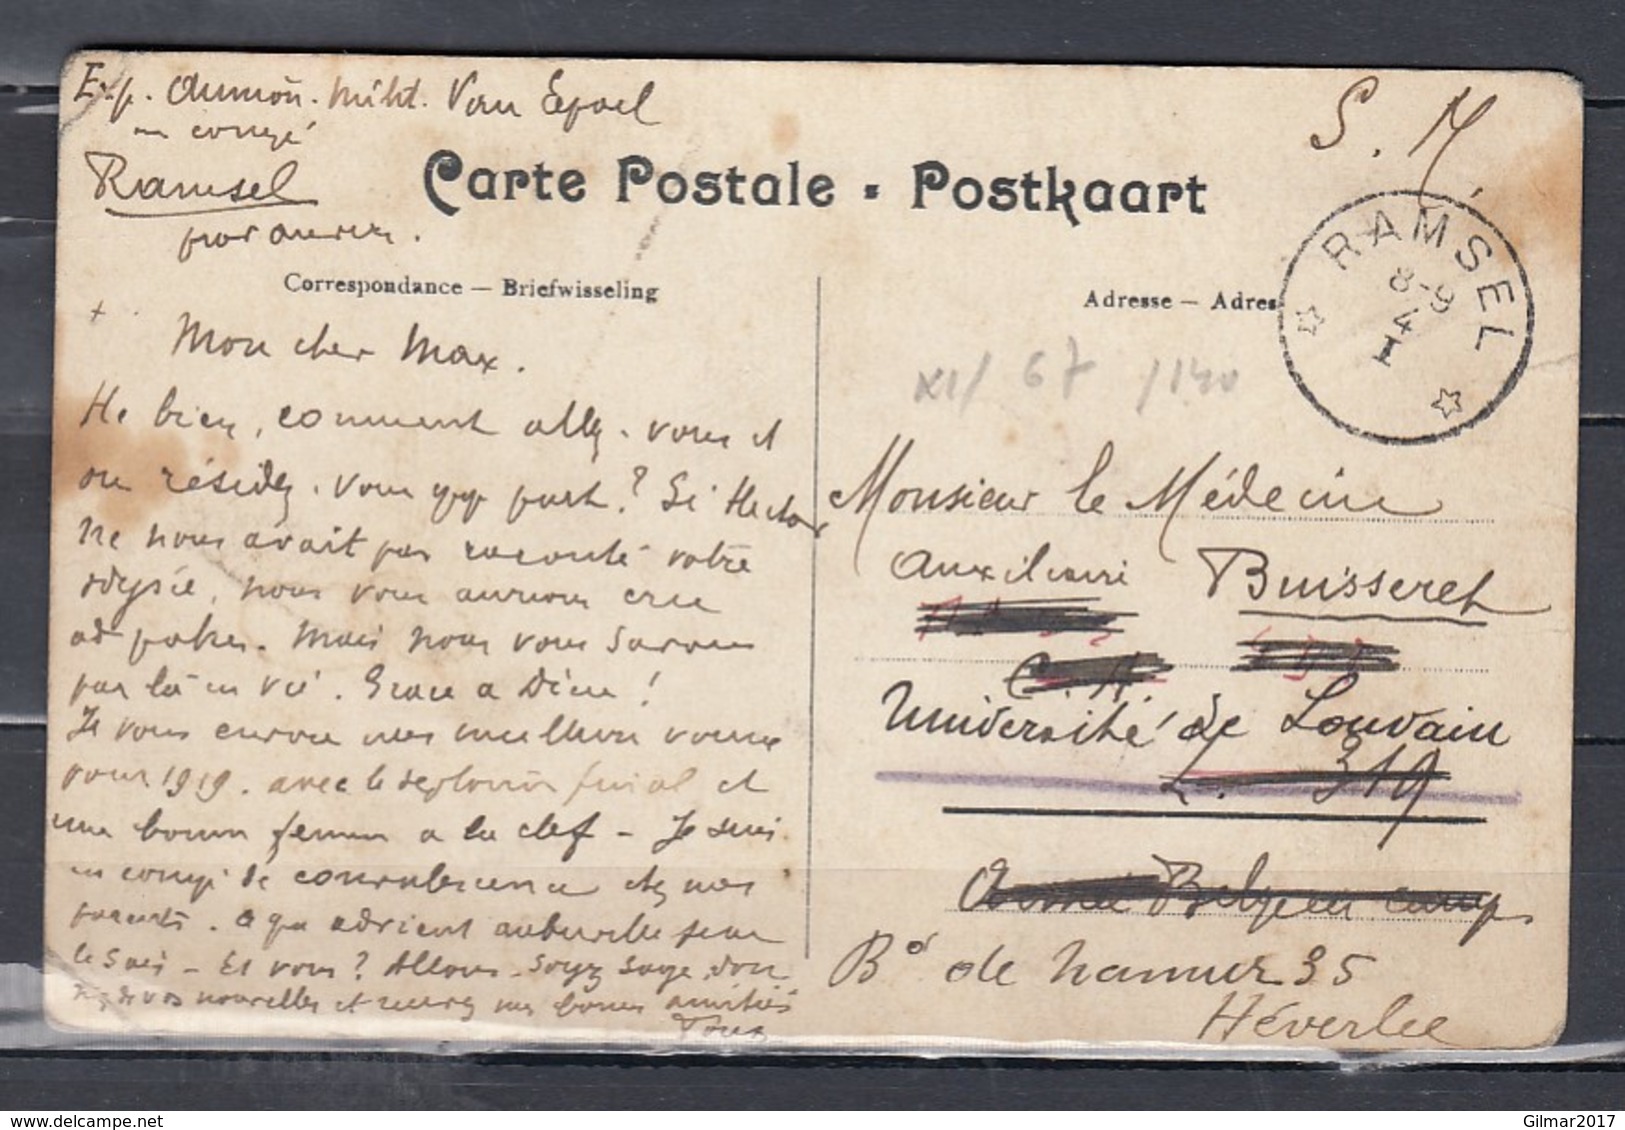 Exp. Aumôn. milit. Van Espoel
en congé
Ramsel
par
S. M.
Carte Postale - Postkaart
Correspondance — Briefwisseling
Adresse — Adres
RAMSEL
8-9
14
XI/ 67 /140
Mon cher Max.
He bien, comment allez-vous et
où résidez-vous part? Si Hector
ne nous avait pas raconté votre
odyssée, nous vous aurions cru
ad patres. Mais nous vous savons
par là en vie. Grâce à Dieu!
Je vous envoie mes meilleurs voeux
pour 1919. avec le final et
une bonne femme à la clef - Je suis
en congé de convalescence chez mes
parents. 
le sais - Et vous? Allons - soyez sage, don
nez de vos nouvelles et recevez mes bonnes amitiés
Monsieur le Médecin
Auxiliaire Buisseret
C. A.
Université de Louvain
L. 319
Armée Belge en camp.
Bd de Namur 35
Héverlee
Gilmar2017